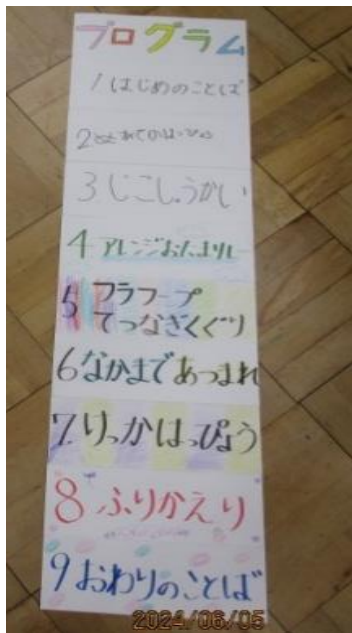 プログラム
1 はじめのことば
2 めあてのはっぴょう
3 じこしょうかい
4 アレンジおたまリレー
5 フラフープ
てつなぎくぐり
6 なかまであつまれ
7. けっかはっぴょう
8 ふりかえり
9 おわりのことば
2024/06/05